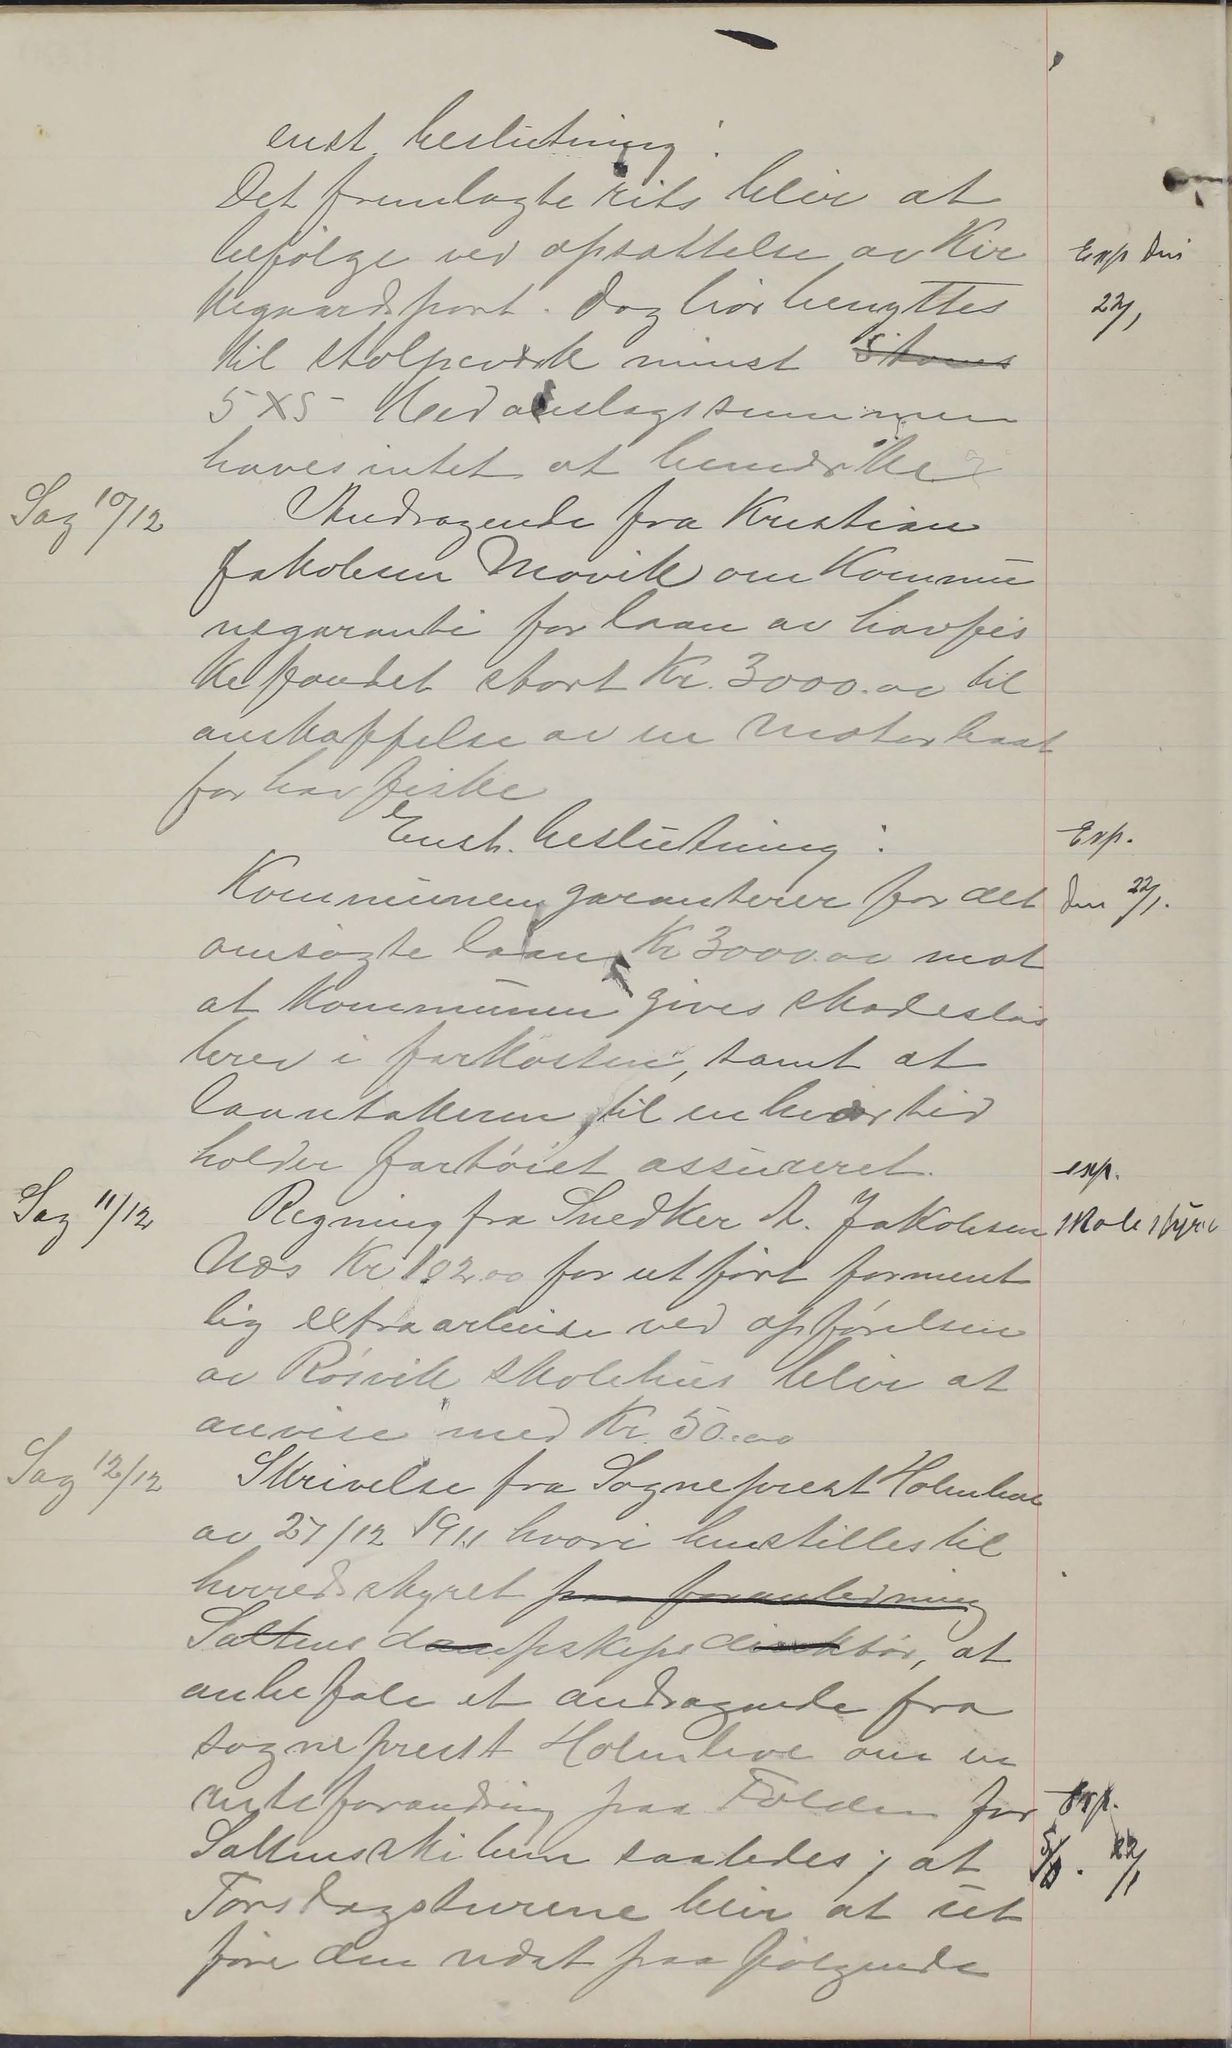 enst. beslutning:
Det fremlagte rits blir at
befølge ved opsættelse av Kir
kegaardsport. Dog bør benyttes
Exp den
22/1
til stolpeverk minst
5 X 5 Ved anslagssummen
haves intet at bemærke
Sag 10/12
Andragende fra Kristian
Jakobsen Movik om Kommu
negaranti for laan av havfis
kefondet stort Kr. 3000.00 til
anskaffelse av en Motorbaat
for havfiske
Enst. beslutning:
Exp.
Kommunen garanterer for det
den 22/1.
omsøgte laan Kr 3000.00 mot
at Kommunen gives skadesløs
brev i farkosten, samt at
laantakeren til enhver tid
holder fartøiet assureret.
exp.
Sag 11/12
Regning fra Snedker A. Jakobsen
Skolestyre
Nes Kr 102.00 for utført forment
lig extraarbeide ved opførelsen
av Røsvik skolehus blir at
anvise med Kr. 50.00
Sag 12/12
Skrivelse fra Sogneprest Holmboe
av 27/12 1911 hvori henstilles til
herredsstyret paa foranledning
Saltens dampskipsdirektør, at
anbefale et andragende fra
sogneprest Holmboe om en
ruteforandring paa Folden for
Exp.
Saltenskibene saaledes, at
22/1
Torsdagsturene blir at ut
føre den udat paa følgende